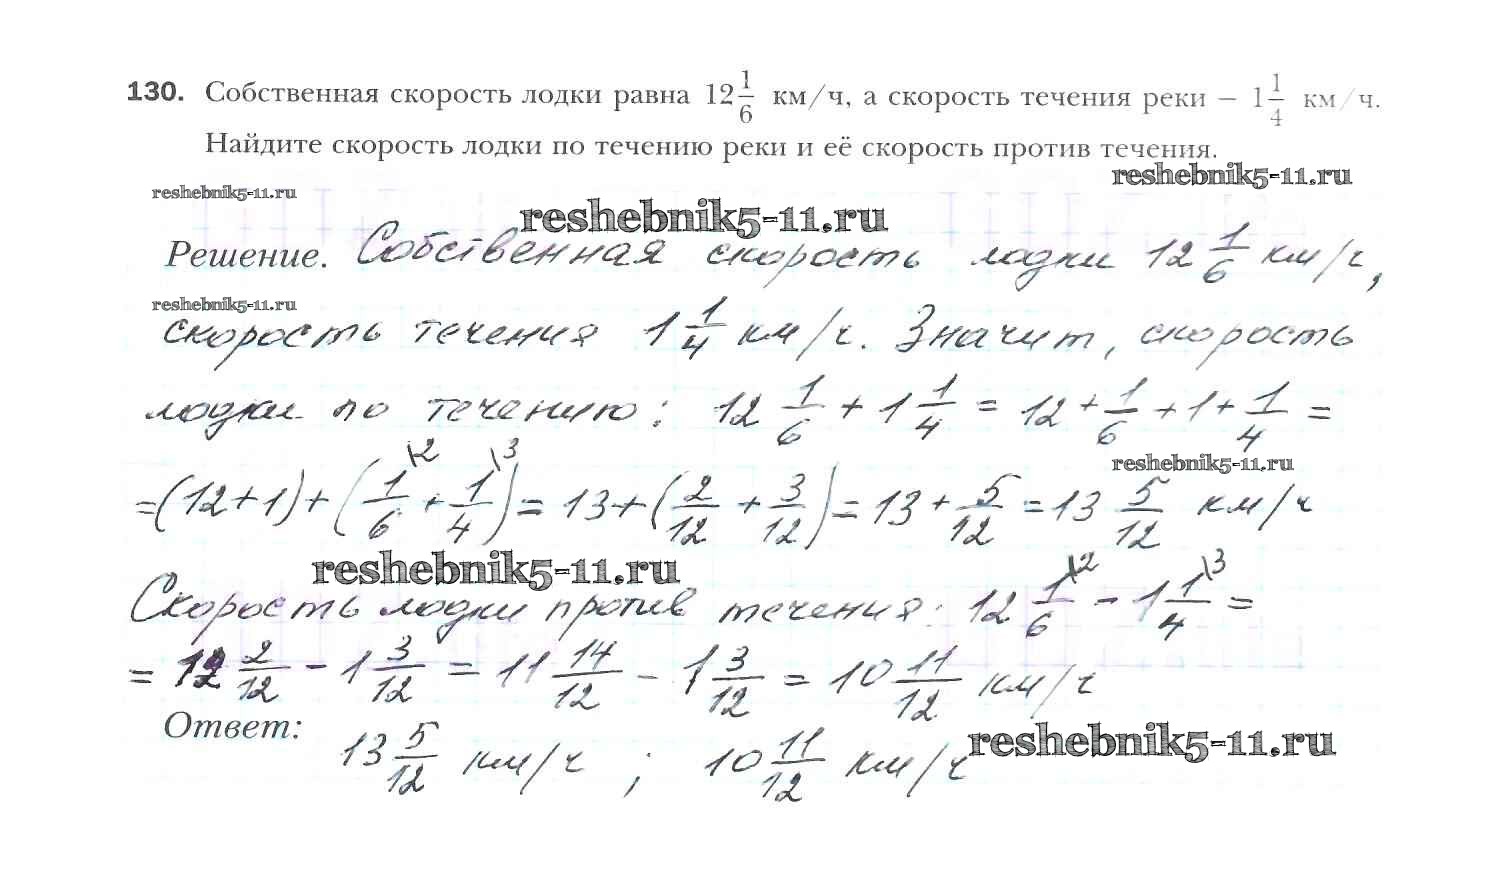 130. Собственная скорость лодки равна 12 1/6 км/ч, а скорость течения реки – 1 1/4 км/ч.
Найдите скорость лодки по течению реки и её скорость против течения.
reshebnik5-11.ru
reshebnik5-11.ru
reshebnik5-11.ru
Решение. Собственная скорость лодки 12 1/6 км/ч,
reshebnik5-11.ru
скорость течения 1 1/4 км/ч. Значит, скорость
лодки по течению: 12 1/6 + 1 1/4 = 12 + 1/6 + 1 + 1/4 =
reshebnik5-11.ru
= (12 + 1) + (1/6 \2 + 1/4 \3) = 13 + (2/12 + 3/12) = 13 + 5/12 = 13 5/12 км/ч
reshebnik5-11.ru
Скорость лодки против течения: 12 1/6 \2 – 1 1/4 \3 =
= 12 2/12 – 1 3/12 = 11 14/12 – 1 3/12 = 10 11/12 км/ч
Ответ: 13 5/12 км/ч ; 10 11/12 км/ч
reshebnik5-11.ru